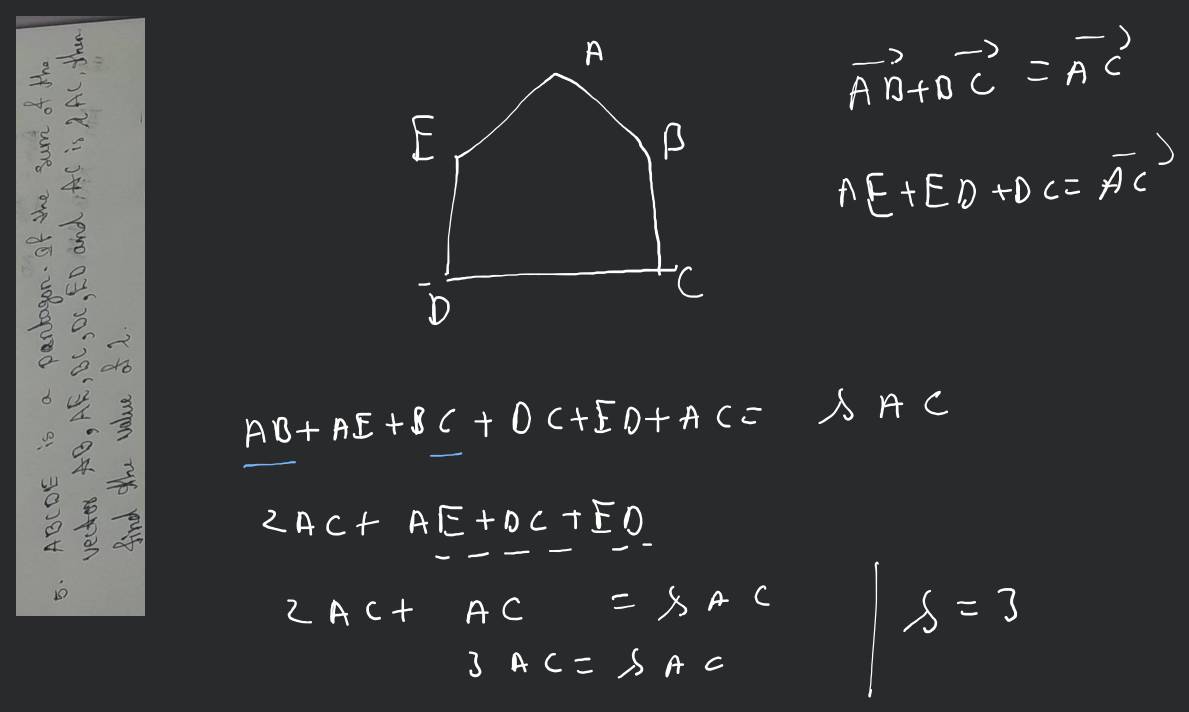 5. ABCDE is a pantagon. If the sum of the
vector AB, AE, BC, DC, ED and AC is λAC, then
find the value of λ.
A
E
B
D
C
AB+BC = AC
AE+ED+DC= AC
AB+AE+BC+DC+ED+AC= λAC
2AC+ AE+DC+ED
2AC+ AC = λAC
3AC= λAC
λ=3